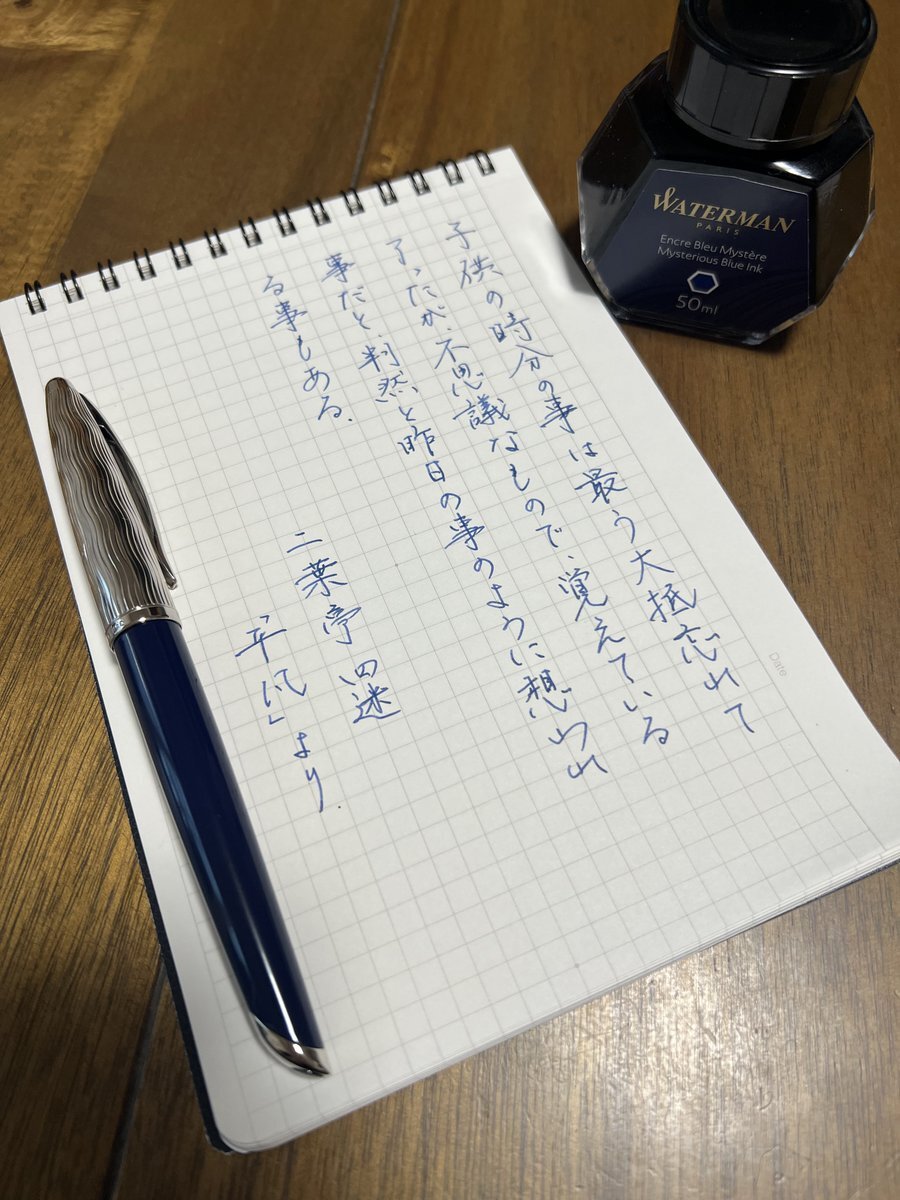 子供の時分の事は最う大抵忘れて
了ったが、不思議なもので、覚えている
事だと、判然と昨日の事のように想われ
る事もある.
二葉亭四迷
「平凡」より.
WATERMAN
PARIS
Encre Bleu Mystère
Mysterious Blue Ink
50ml
Date